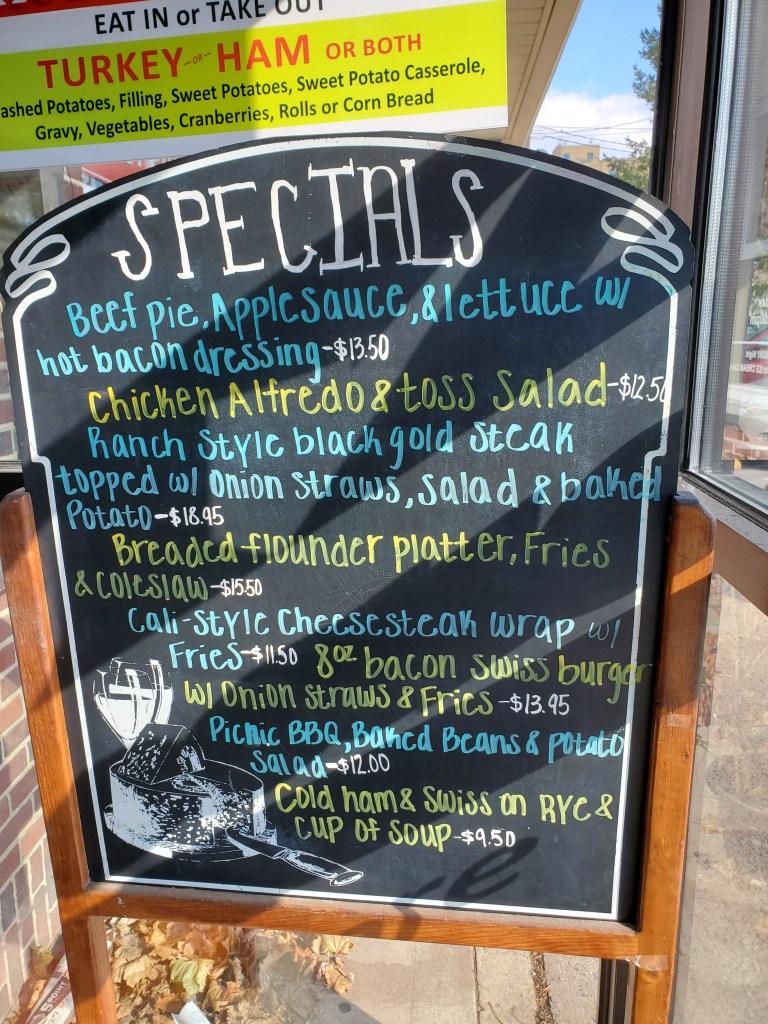 EAT IN or TAKE OUT
TURKEY -OR- HAM OR BOTH
ashed Potatoes, Filling, Sweet Potatoes, Sweet Potato Casserole,
Gravy, Vegetables, Cranberries, Rolls or Corn Bread
SPECIALS
Beef pie, Applesauce, & lettuce w/
hot bacon dressing-$13.50
Chicken Alfredo & toss Salad-$12.50
Ranch Style black gold Steak
topped w/ Onion Straws, Salad & baked
Potato-$18.95
Breaded flounder platter, Fries
& Coleslaw-$15.50
Cali-Style Cheesesteak wrap w/
Fries-$11.50 8oz bacon swiss burger
w/ Onion Straws & Fries-$13.95
Picnic BBQ, Baked Beans & potato
Salad-$12.00
Cold ham & Swiss on Rye &
Cup of soup-$9.50